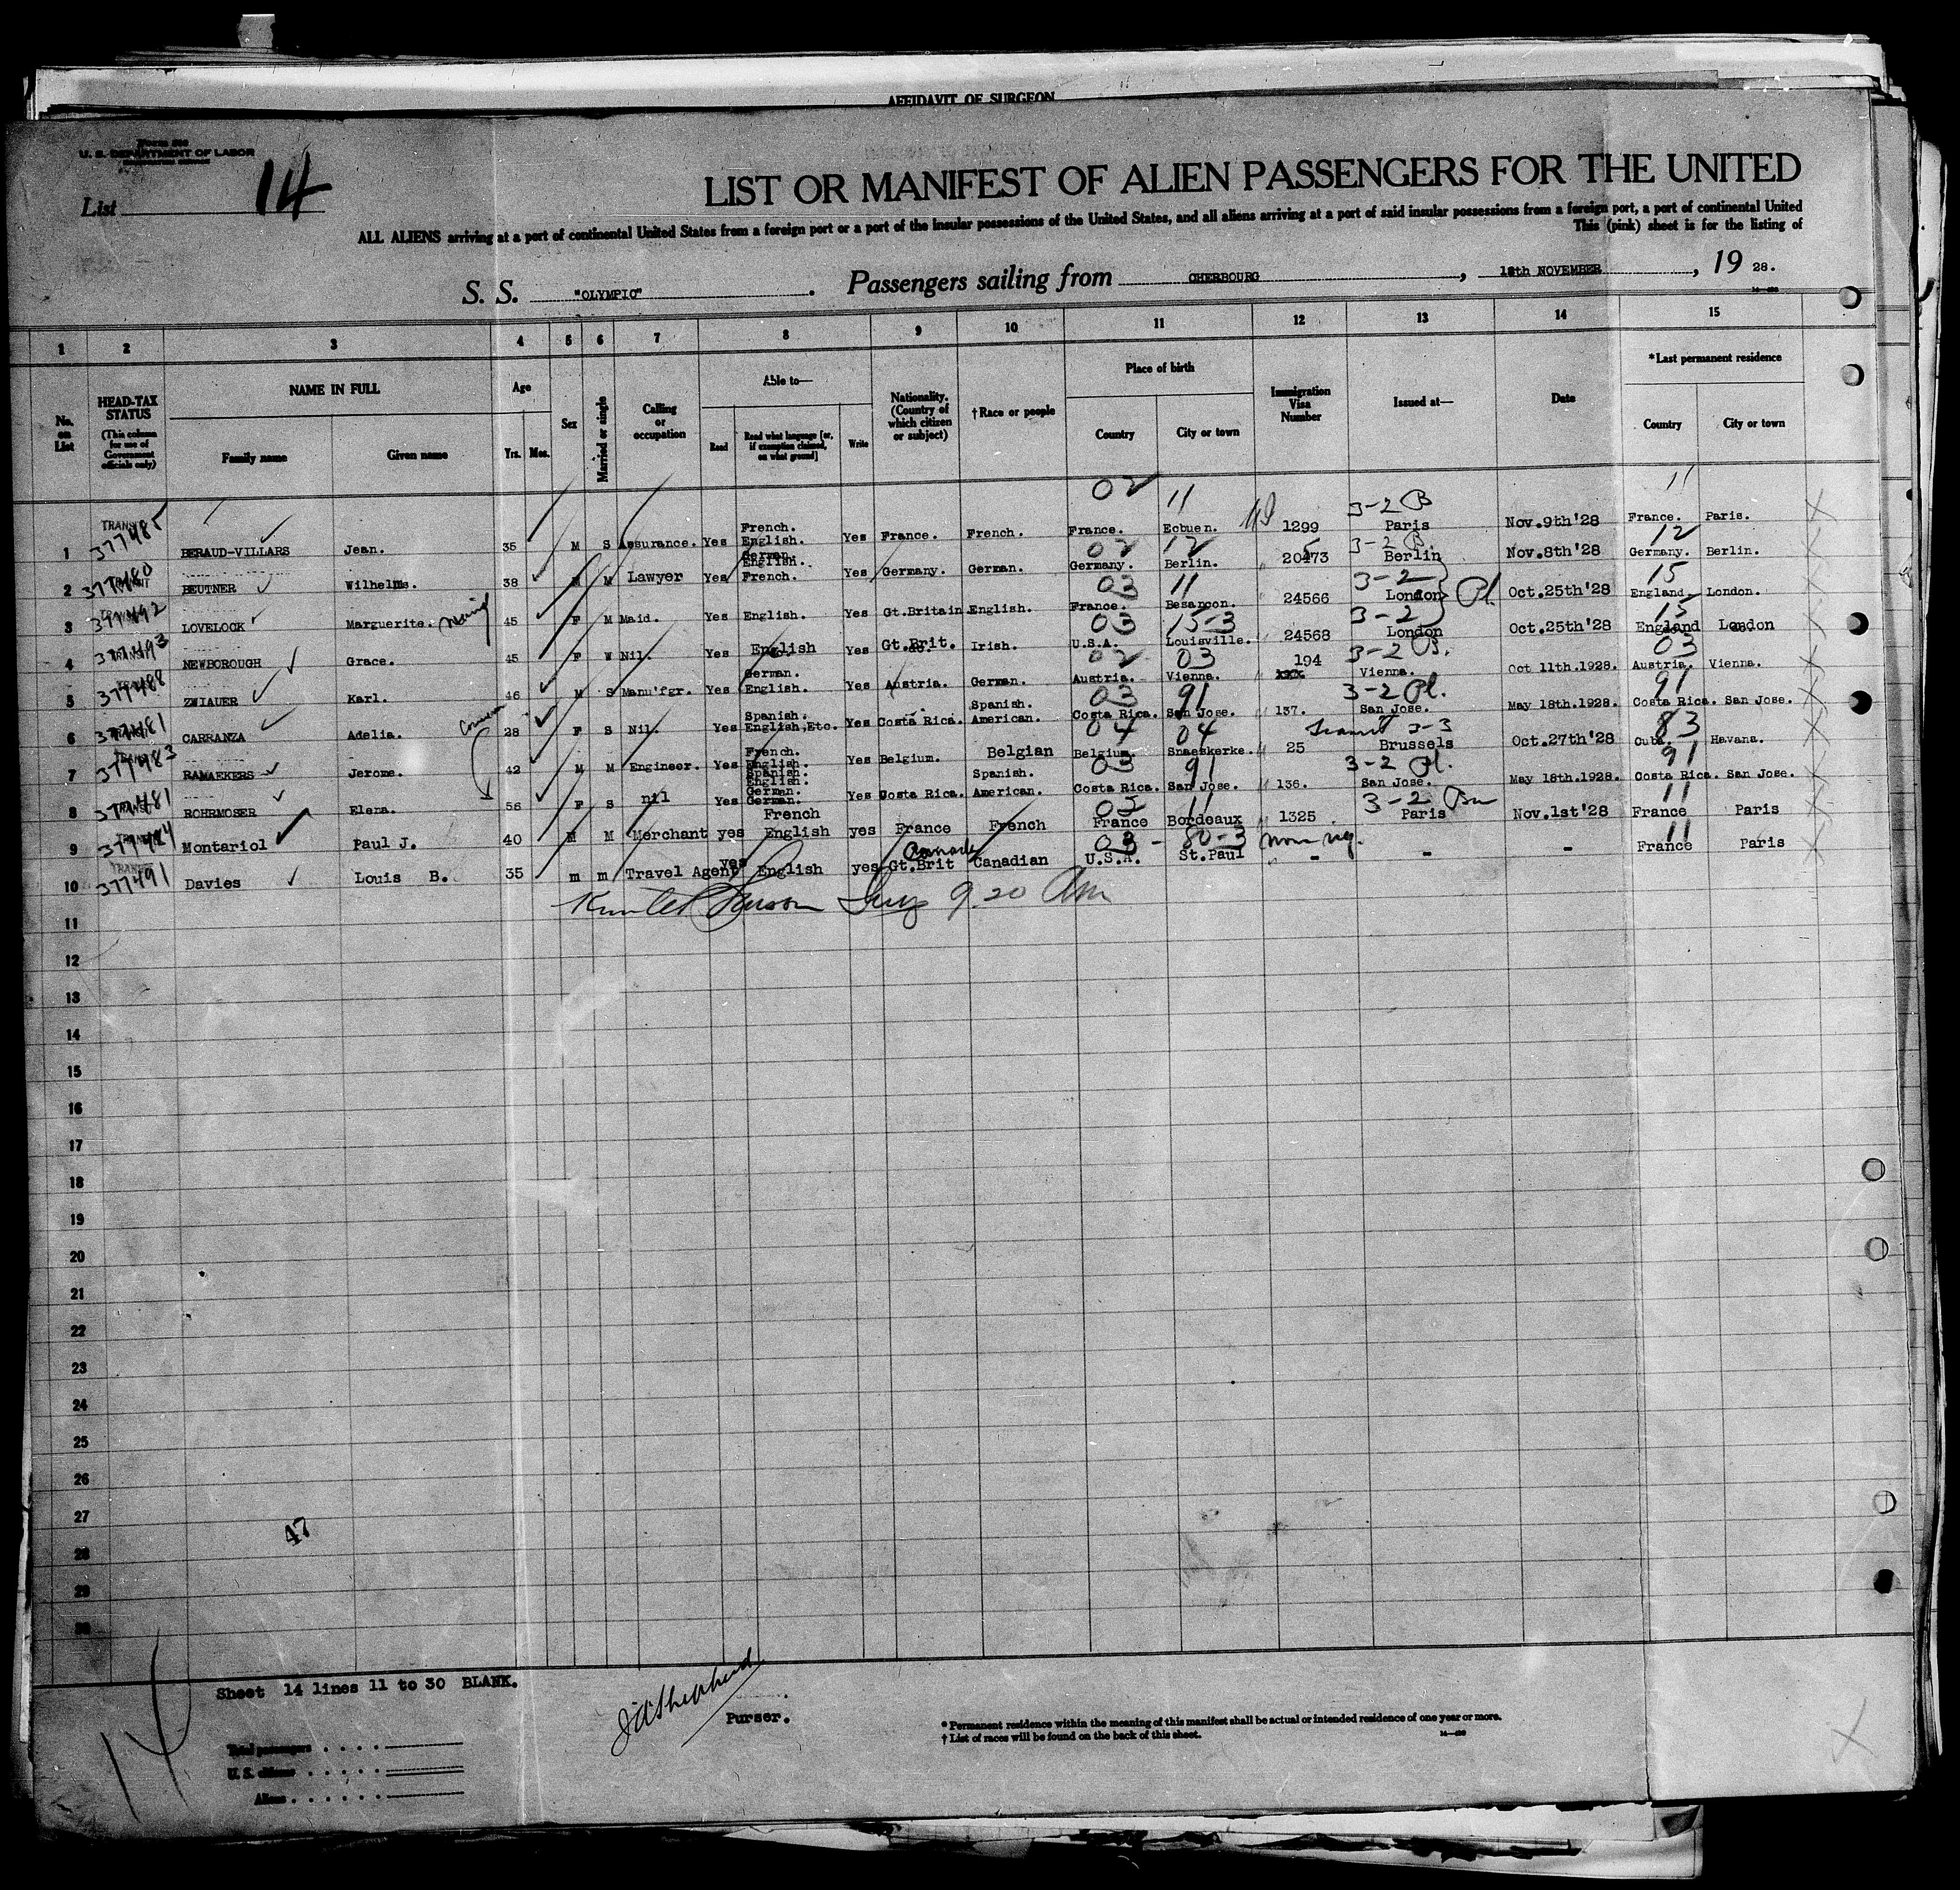 AFFIDAVIT OF SURGEON
U. S. DEPARTMENT OF LABOR
List 14
LIST OR MANIFEST OF ALIEN PASSENGERS FOR THE UNITED
ALL ALIENS arriving at a port of continental United States from a foreign port or a port of the insular possessions of the United States, and all aliens arriving at a port of said insular possessions from a foreign port, a port of continental United
This (pink) sheet is for the listing of
S. S. "OLYMPIC" . Passengers sailing from CHERBOURG , NOVEMBER , 19 28.
1 2 3 4 5 6 7 8 9 10 11 12 13 14 15
No. on List
HEAD-TAX STATUS (This column for use of Government officials only)
NAME IN FULL Family name Given name
Age Yrs. Mos.
Sex
Married or single
Calling or occupation
Able to— Read Read what language [or, if exemption claimed, on what ground] Write
Nationality. (Country of which citizen or subject)
†Race or people
Place of birth Country City or town
Immigration Visa Number
Issued at—
Date
*Last permanent residence Country City or town
02 11 3-2 B 11
1 TRANSIT 377485 BERAUD-VILLARS Jean. 35 M S Assurance. Yes French. English. German. Yes France. French. France. Ecouen. 1299 Paris Nov.9th'28 France. Paris.
02 12 3-2 B. 12
2 377480 BEUTNER Wilhelms. 38 M M Lawyer Yes English. French. Yes Germany. German. Germany. Berlin. 20473 Berlin Nov.8th'28 Germany. Berlin.
03 11 3-2 Pl. 15
3 377492 LOVELOCK Marguerite. 45 F M Maid. Yes English. Yes Gt.Britain English. France. Besancon. 24566 London Oct.25th'28 England. London.
03 15-3 3-2 15
4 377493 NEWBOROUGH Grace. 45 F W Nil. Yes English Yes Gt.Brit. Irish. U.S.A. Louisville. 24568 London Oct.25th'28 England London
02 03 3-2 B. 03
5 377488 ZWIAUER Karl. 46 M S Manu'fgr. Yes German. English. Yes Austria. German. Austria. Vienna. 194 xxx Vienna. Oct 11th.1928. Austria. Vienna.
03 91 3-2 Pl. 91
6 377481 CARRANZA Adelia. 28 F S Nil. Yes Spanish. English,Etc. Yes Costa Rica. Spanish. American. Costa Rica. San Jose. 137. San Jose. May 18th.1928. Costa Rica. San Jose.
04 04 Transit 3-3 83
7 377483 RAMAEKERS Jerome. 42 M M Engineer. Yes French. English. Spanish. Yes Belgium. Belgian Belgium. Snaeskerke. 25 Brussels Oct.27th'28 Cuba. Havana.
03 91 3-2 Pl. 91
8 377481 ROHRMOSER Elena. 56 F S nil Yes English. German. German. Yes Costa Rica. Spanish. American. Costa Rica. San Jose. 136. San Jose. May 18th.1928. Costa Rica. San Jose.
03 11 3-2 11
9 Montariol Paul J. 40 M M Merchant yes French English yes France French France Bordeaux 1325 Paris Nov.1st'28 France Paris
03 - 80-3 11
10 TRANSIT 377491 Davies Louis B. 35 m m Travel Agent yes English yes Canada Gt.Brit Canadian U.S.A. St.Paul - - - France Paris
9.20 Am
11
12
13
14
15
16
17
18
19
20
21
22
23
24
25
26
27
47
28
29
30
14
Sheet 14 lines 11 to 30 BLANK.
J A Shepherd
Purser.
Total passengers
U. S. citizens
Aliens
* Permanent residence within the meaning of this manifest shall be actual or intended residence of one year or more.
† List of races will be found on the back of this sheet.